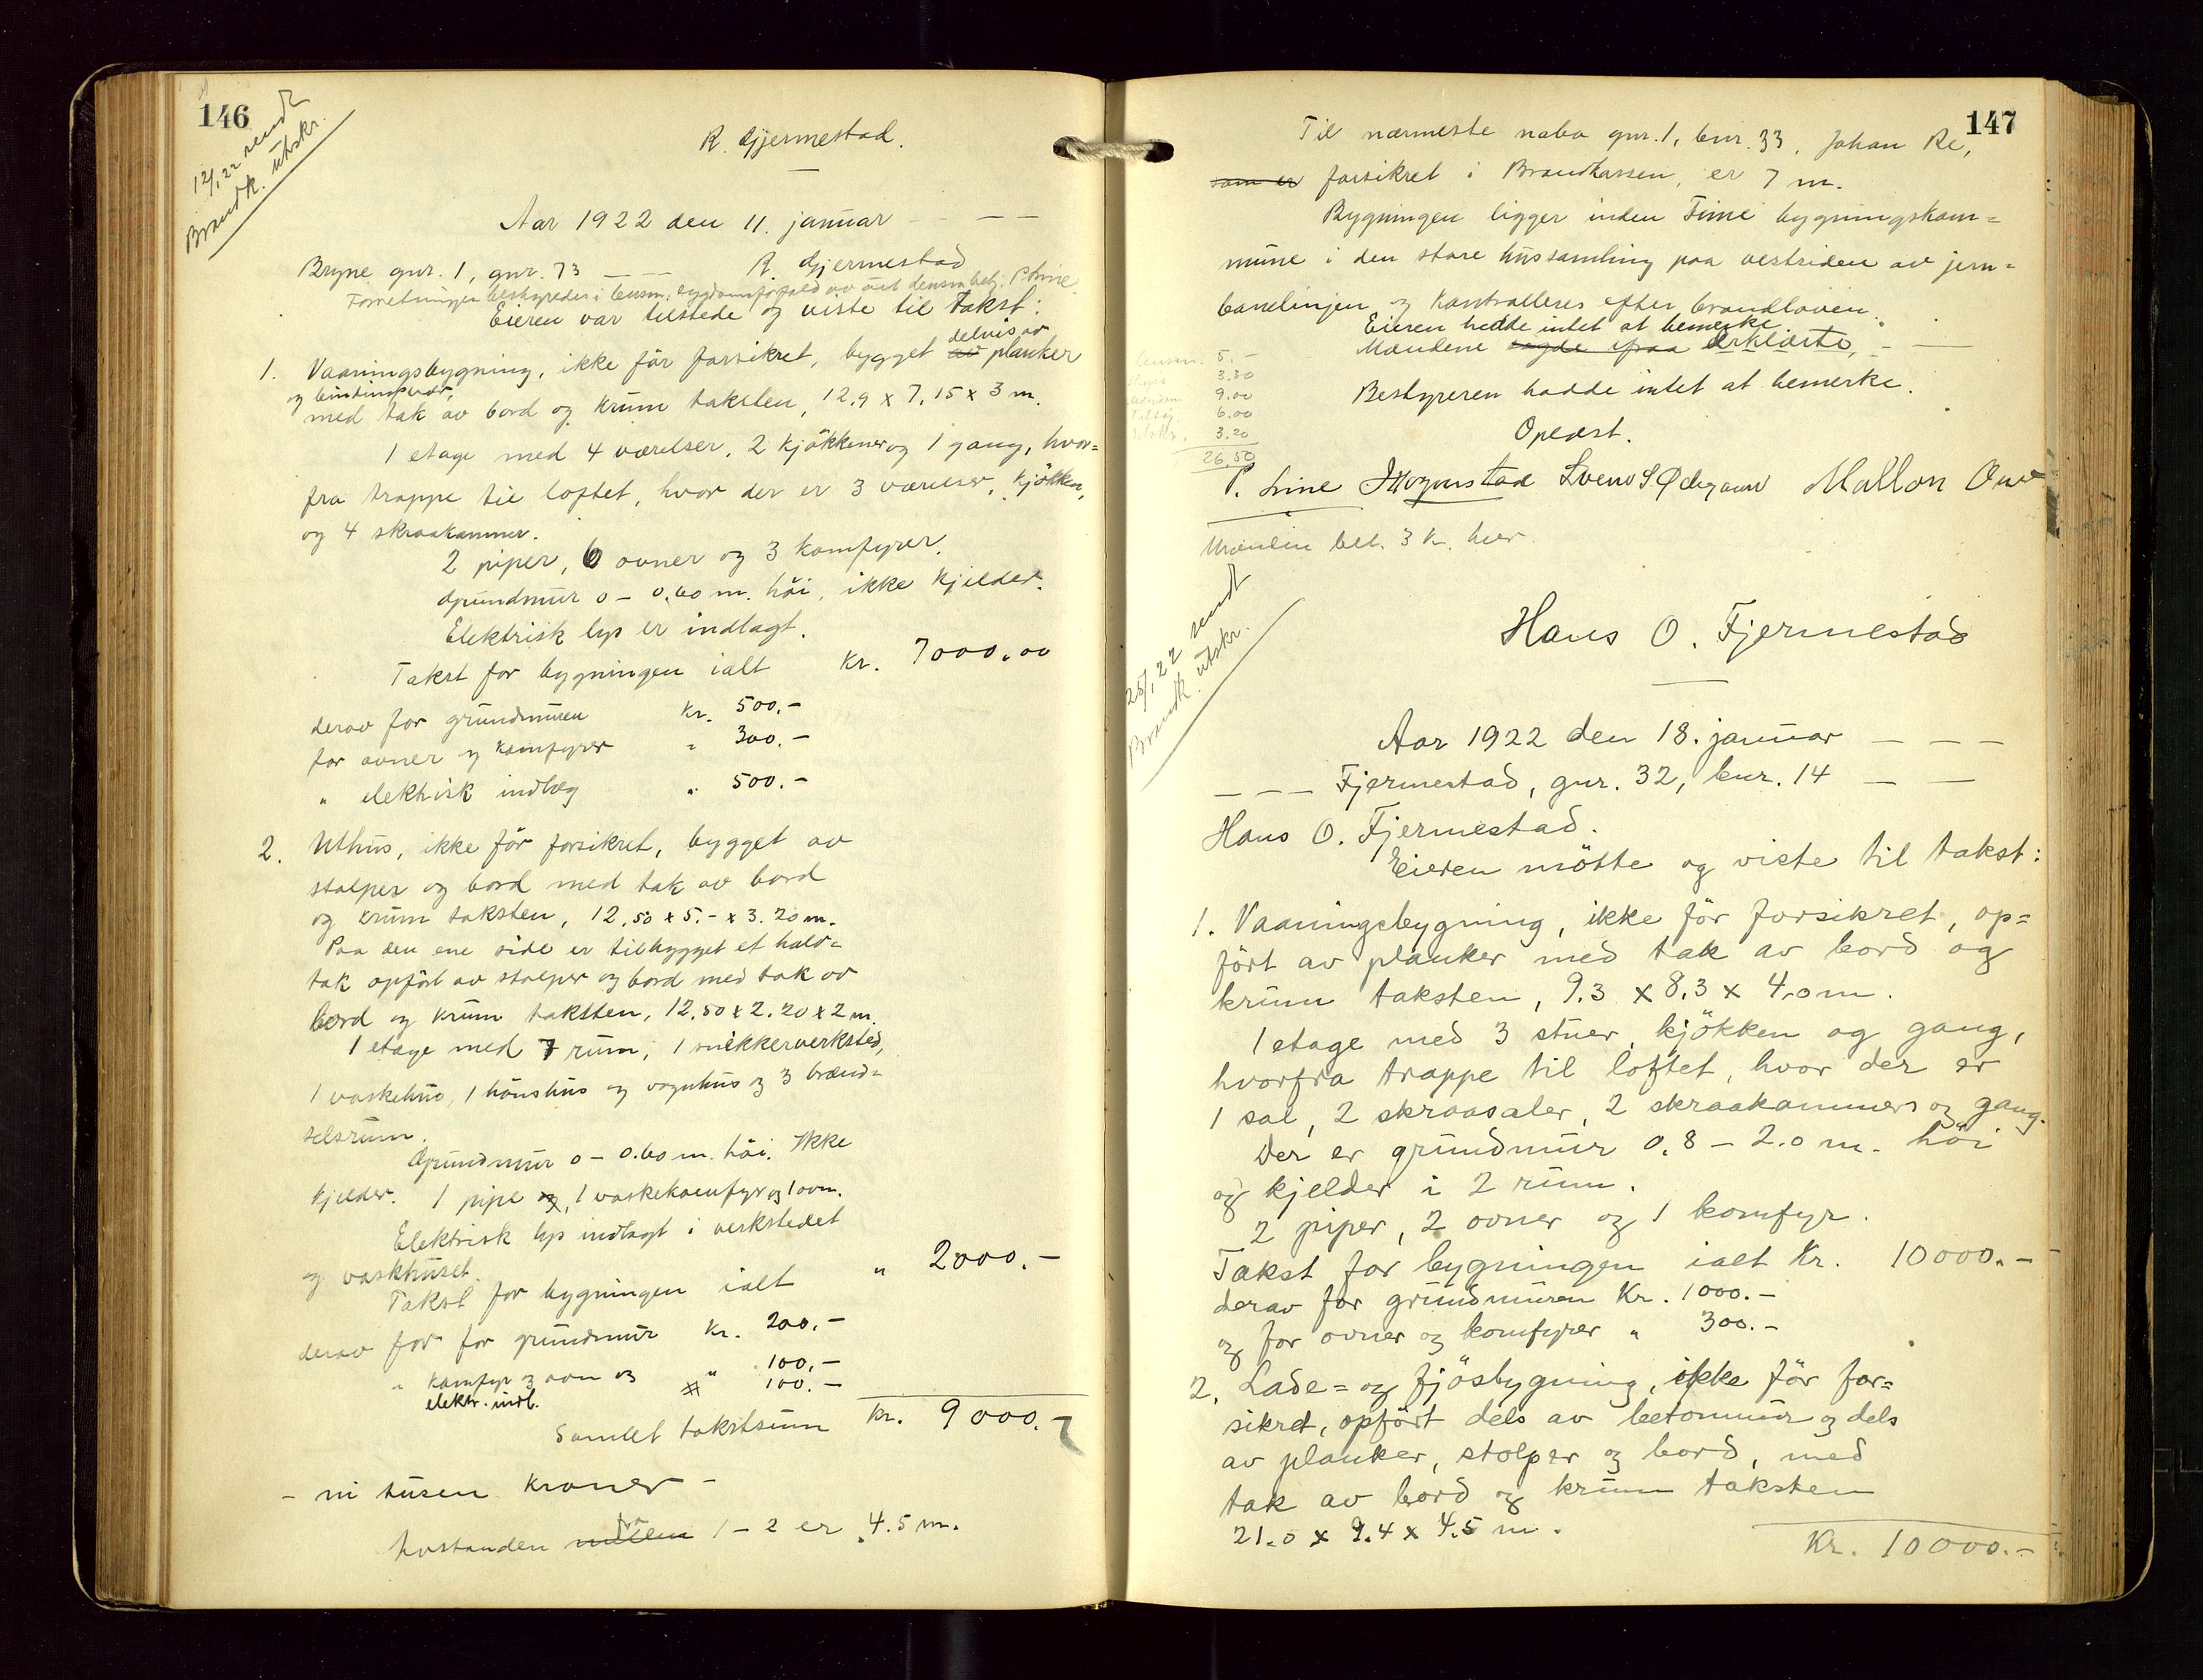 146
12/1 22 sendt
Brandk. utskr.
R. Gjermestad.
Aar 1922 den 11. januar — — —
Bryne gnr. 1, gnr. 73 — — R. Gjermestad
Forretningen bestyredes i lensm. sygdomsforfald av
Eieren var tilstede og viste til takst:
delvis av
1. Vaaningsbygning, ikke før forsikret, bygget av planker
og bindingsverk,
med tak av bord og krum taksten, 12.9 x 7.15 x 3 m.
1 etage med 4 værelser, 2 kjøkkener og 1 gang, hvor=
fra trappe til loftet, hvor der er 3 værelser, kjøkken,
og 4 skraakammer.
2 piper, 6 ovner og 3 komfyrer.
Grundmur 0 – 0.60 m. høi, ikke kjelder.
Elektrisk lys er indlagt.
Takst for bygningen ialt Kr. 7000.00
derav for grundmuren Kr. 500.-
for ovner og komfyrer " 300.-
" elektrisk indlæg " 500.-
2. Uthus, ikke før forsikret, bygget av
stolper og bord med tak av bord
og krum taksten, 12.50 x 5.- x 3.20 m.
Paa den ene side er tilbygget et halv=
tak opført av stolper og bord med tak av
bord og krum taksten, 12.50 x 2.20 x 2 m.
1 etage med 7 rum, 1 snekkerverksted,
1 vaskehus, 1 hønshus og vognhus og 3 brænd=
selsrum.
Grundmur 0 – 0.60 m. høi. Ikke
kjelder. 1 pipe og, 1 vaskekomfyr og 1 ovn.
Elektrisk lys indlagt i verkstedet
og vaskhuset.
Takst for bygningen ialt " 2000.-
derav for for grundmur Kr. 200.-
" komfyr og ovn og " 100.-
elektr. indl. 100.-
Samlet takstsum Kr. 9000.-
- ni tusen kroner -
fra
Avstanden mellem 1 – 2 er 4.5 m.
147
Til nærmeste nabo gnr. 1, bnr. 33, Johan Re,
som er forsikret i Brandkassen, er 7 m.
Bygningen ligger inden Time bygningskom=
mune i den store hussamling paa vestsiden av jern=
banelinjen og kontrolleres efter brandloven.
Eieren hadde intet at bemerke
Mændene sagde ipaa erklærte, - —
Bestyreren hadde intet at bemerke.
Oplæst.
5.-
3.30
9.00
6.00
3.20
26.50
P. Lima Svend S Ødegaard
bet. 3 Kr. hver.
25/1 22 sendt
Brandk. utskr.
Hans O. Fjermestad
Aar 1922 den 18. januar — — —
— — — Fjermestad, gnr. 32, bnr. 14 — —
Hans O. Fjermestad.
Eieren møtte og viste til takst:
1. Vaaningsbygning, ikke før forsikret, op=
ført av planker med tak av bord og
krum taksten, 9.3 x 8.3 x 4.0 m.
1 etage med 3 stuer, kjøkken og gang,
hvorfra trappe til loftet, hvor der er
1 sal, 2 skraasaler, 2 skraakammers og gang.
Der er grundmur 0.8 – 2.0 m. høi
og kjelder i 2 rum.
2 piper, 2 ovner og 1 komfyr.
Takst for bygningen ialt Kr. 10000.-
derav for grundmuren Kr. 1000.-
og for ovner og komfyrer " 300.-
2. Lade= og fjøsbygning, ikke før for=
sikret, opført dels av betonmur og dels
av planker, stolper og bord, med
tak av bord og krum taksten
21.0 x 9.4 x 4.5 m.
Kr. 10000.-